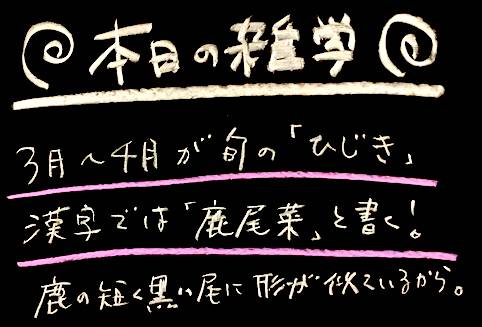 本日の雑学
3月〜4月が旬の「ひじき」
漢字では「鹿尾菜」と書く!
鹿の短く黒い尾に形が似ているから。